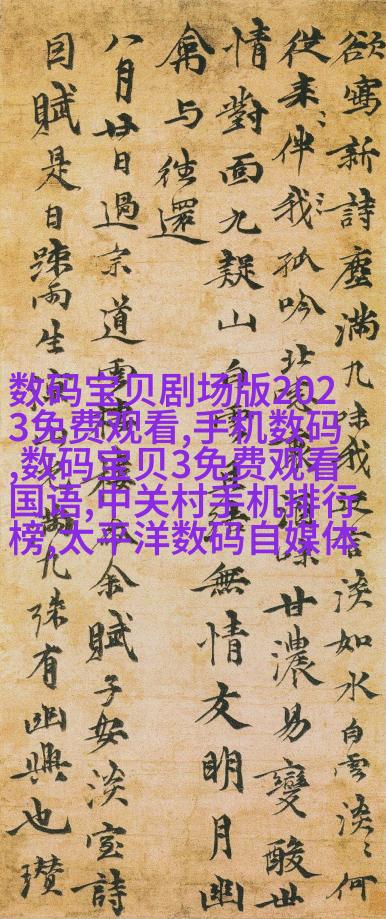 欲寫新詩塵滿九味我言淡如水白雲淡〻何
從來〻伴我〻孤吟北味甘濃易變酸世
情對面九疑山白雲無情友明月幽
禽与徃還
八月廿日過宗道雲余賦子安淡室詩
目賦是日踈雨生九殊有幽興也瓚
数码宝贝剧场版202
3免费观看,手机数码
,数码宝贝3免费观看
国语,中关村手机排行
榜,太平洋数码自媒体